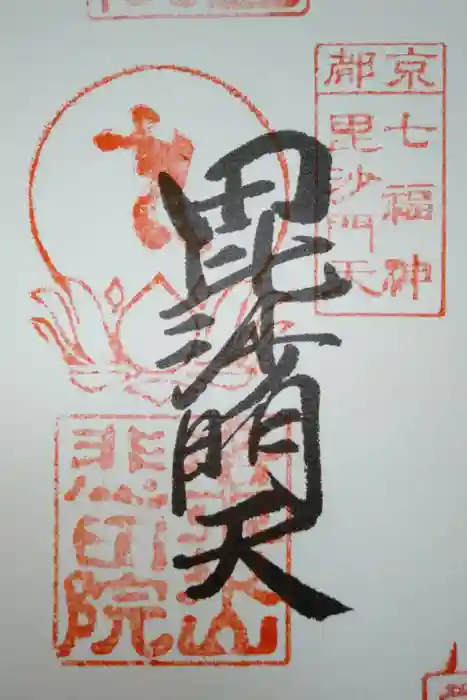 京都
七福神
毘沙門天
毘沙門天
悲田院